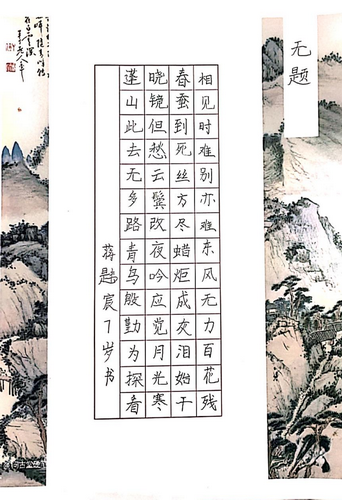 无题
相见时难别亦难东风无力百花残
春蚕到死丝方尽蜡炬成灰泪始干
晓镜但愁云鬓改夜吟应觉月光寒
蓬山此去无多路青鸟殷勤为探看
蒋宸7岁书